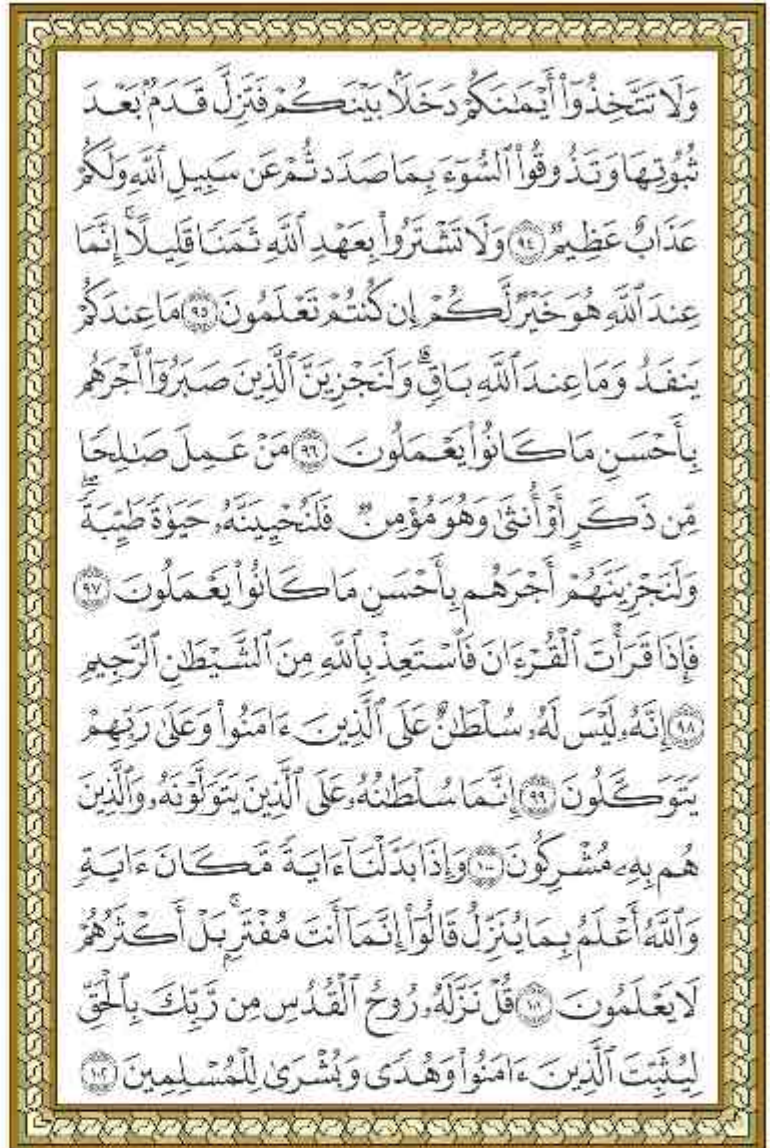 وَلَا تَتَّخِذُوٓا۟ أَيْمَٰنَكُمْ دَخَلًۢا بَيْنَكُمْ فَتَزِلَّ قَدَمٌۢ بَعْدَ
ثُبُوتِهَا وَتَذُوقُوا۟ ٱلسُّوٓءَ بِمَا صَدَدتُّمْ عَن سَبِيلِ ٱللَّهِ وَلَكُمْ
عَذَابٌ عَظِيمٌ ۝٩٤ وَلَا تَشْتَرُوا۟ بِعَهْدِ ٱللَّهِ ثَمَنًا قَلِيلًا ۚ إِنَّمَا
عِندَ ٱللَّهِ هُوَ خَيْرٌ لَّكُمْ إِن كُنتُمْ تَعْلَمُونَ ۝٩٥ مَا عِندَكُمْ
يَنفَدُ وَمَا عِندَ ٱللَّهِ بَاقٍ ۗ وَلَنَجْزِيَنَّ ٱلَّذِينَ صَبَرُوٓا۟ أَجْرَهُم
بِأَحْسَنِ مَا كَانُوا۟ يَعْمَلُونَ ۝٩٦ مَنْ عَمِلَ صَٰلِحًا
مِّن ذَكَرٍ أَوْ أُنثَىٰ وَهُوَ مُؤْمِنٌ فَلَنُحْيِيَنَّهُۥ حَيَوٰةً طَيِّبَةً ۖ
وَلَنَجْزِيَنَّهُمْ أَجْرَهُم بِأَحْسَنِ مَا كَانُوا۟ يَعْمَلُونَ ۝٩٧
فَإِذَا قَرَأْتَ ٱلْقُرْءَانَ فَٱسْتَعِذْ بِٱللَّهِ مِنَ ٱلشَّيْطَٰنِ ٱلرَّجِيمِ
۝٩٨ إِنَّهُۥ لَيْسَ لَهُۥ سُلْطَٰنٌ عَلَى ٱلَّذِينَ ءَامَنُوا۟ وَعَلَىٰ رَبِّهِمْ
يَتَوَكَّلُونَ ۝٩٩ إِنَّمَا سُلْطَٰنُهُۥ عَلَى ٱلَّذِينَ يَتَوَلَّوْنَهُۥ وَٱلَّذِينَ
هُم بِهِۦ مُشْرِكُونَ ۝١٠٠ وَإِذَا بَدَّلْنَآ ءَايَةً مَّكَانَ ءَايَةٍ
وَٱللَّهُ أَعْلَمُ بِمَا يُنَزِّلُ قَالُوٓا۟ إِنَّمَآ أَنتَ مُفْتَرٍۭ ۚ بَلْ أَكْثَرُهُمْ
لَا يَعْلَمُونَ ۝١٠١ قُلْ نَزَّلَهُۥ رُوحُ ٱلْقُدُسِ مِن رَّبِّكَ بِٱلْحَقِّ
لِيُثَبِّتَ ٱلَّذِينَ ءَامَنُوا۟ وَهُدًى وَبُشْرَىٰ لِلْمُسْلِمِينَ ۝١٠٢